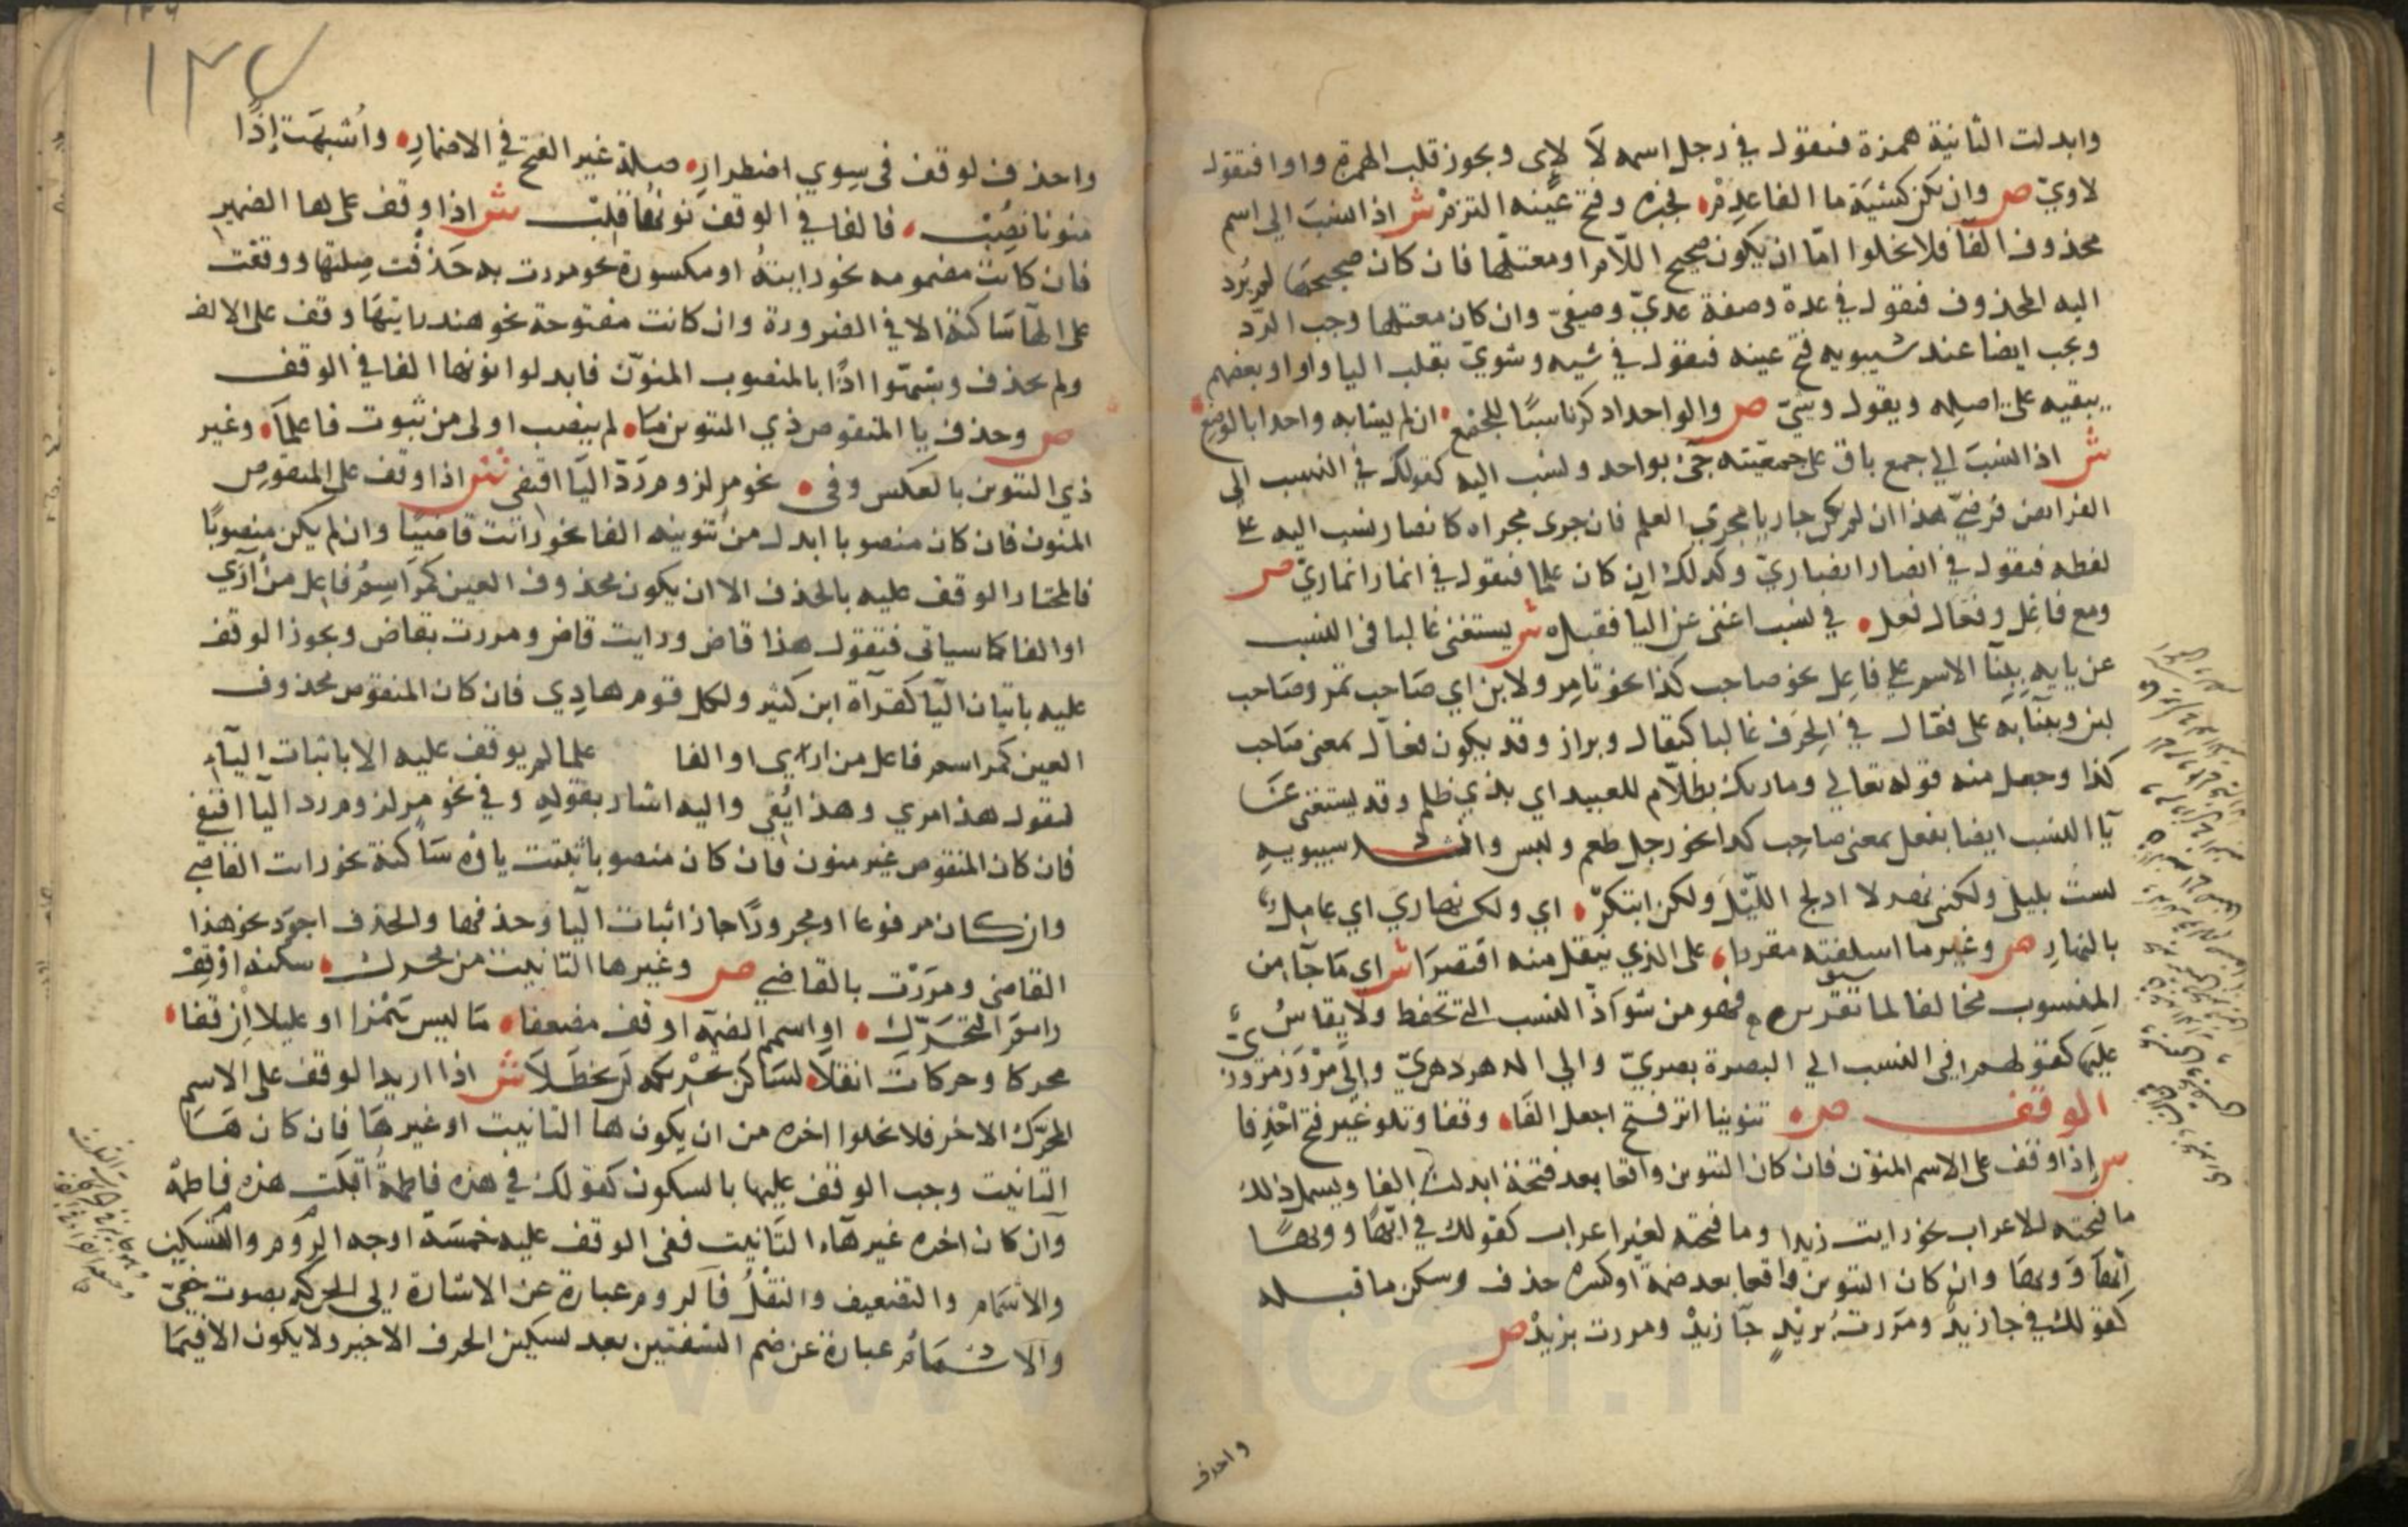 وابدلت الثانية همزة فنقول في رجل اسمه لا لاى ويجوز قلب الهمزة واوا فنقول
لاويّ ص وان يكن كشية ما الفا عدم فجبره وفتح عينه التزم ش اذا نسب الي اسم
محذوف الفا فلا يخلوا امّا ان يكون صحيح اللام او معتلها فان كان صحيحها لم يرد
اليه المحذوف فنقول في عدة وصفة عديّ وصفيّ وان كان معتلها وجب الردّ
ويجب ايضا عند سيبويه فتح عينه فنقول في شيه وشويّ بقلب اليا واوا وبعضهم
يبقيه على اصله ويقول وشيّ ص والواحد اذكر ناسبًا للجمع ان لم يشابه واحدا بالوضع
ش اذا نسب الي جمع باق على جمعيته جئ بواحد ونسب اليه كقولك في النسب الى
الفرايض فرضيّ هذا ان لم يكن جاريا مجرى العلم فان جرى مجراه كانصار نسب اليه على
لفظه فنقول في انصار انصاريّ وكذلك ان كان علما فنقول في انمار انماريّ ص
ومع فاعل وفعال فعل في نسب اغنى عن اليا فقبل ش يستغنى غالبا في النسب
عن يايه ببنآ الاسم علي فاعل نحو صاحب كذا نحو تامر ولابن اي صاحب تمر وصاحب
لبن وببنآيه على فعّال في الحرف غالبا كبقال وبزاز وقد يكون فعّال بمعنى صاحب
كذا وجعل منه قوله تعالي وما ربك بظلّام للعبيد اي بذي ظلم وقد يستغنى عن
يآ النسب ايضا بفعل بمعنى صاحب كذا نحو رجل طعم ولبس وانشد سيبويه
لست بليلي ولكني نهر لا ادلج الليل ولكن ابتكر اي ولكن نهاريّ اي عامل
بالنهار ص وغير ما اسلفته مقررا على الذي ينقل منه اقتصرا ش اي ما جآ من
المنسوب مخالفا لما سبق تقريره فهو من شواذّ النسب التي تحفظ ولا يقاس
عليها كقولهم في النسب الي البصرة بصريّ والي الدهر دهريّ والى مرو مروزيّ
الوقف ص تنوينا اثر فتح اجعل الفا وقفا وتلو غير فتح احذفا
ش اذا وقف على الاسم المنوّن فان كان التنوين واقعا بعد فتحة ابدلت الفا ويشمل ذلك
ما فتحته للاعراب نحو رايت زيدا وما فتحته لغير اعراب كقولك في ايهًا وويهًا
ايها وويها وان كان التنوين واقعا بعد ضمة او كسرة حذف وسكن ما قبله
كقولك في جا زيدٌ ومررت بزيدٍ جآ زيدْ ومررت بزيدْ ص
واحذف
١٣٧
واحذف لوقف في سوي اضطرار صلة غير الفتح في الاضمار واشبهت إذًا
منونا نصب فالفا في الوقف نونها قلب ش اذا وقف على ها الضمير
فان كانت مضمومه نحو رايته او مكسورة نحو مررت به حذفت صلتها ووقف
على الهآ ساكنة الا في الضرورة وان كانت مفتوحة نحو هند رايتها وقف على الالف
ولم تحذف وشبّهوا اذًا بالمنصوب المنوّن فابدلوا نونها الفا في الوقف
ص وحذف يا المنقوص ذي التنوين ما لم ينصب اولى من ثبوت فاعلما وغير
ذي التنوين بالعكس وفي نحو مر لزوم ردّ اليا اقتفي ش اذا وقف على المنقوص
المنون فان كان منصوبا ابدل من تنوينه الفا نحو رايت قاضيًا وان لم يكن منصوبًا
فالمختار الوقف عليه بالحذف الا ان يكون محذوف العين كمر اسم فاعل من أرَي
او الفا كما سياتى فتقول هذا قاض ورايت قاض ومررت بقاض ويجوز الوقف
عليه باتيان اليا كقرآة ابن كثير ولكل قوم هادِي فان كان المنقوص محذوف
العين كمر اسم فاعل من ارايى او الفا علما لم يوقف عليه الا باثبات اليآء
فنقول هذا مري وهذا يَفي واليه اشار بقوله وفي نحو مر لزوم رد اليا اقتفي
فان كان المنقوص غير منون فان كان منصوبا ثبتت ياؤه ساكنة نحو رات القاضي
وان كان مرفوعا او مجرورًا جاز اثبات اليا وحذفها والحذف اجود نحو هذا
القاضي ومررت بالقاضي ص وغير ها التانيث من محرك سكنه او قف
رايم التحرّك او اشمم الضمّه او قف مضعفا ما ليس همزا او عليلا ان قفا
محركا وحركات انقلا لساكن تحريكه لن يحظلا ش اذا اريد الوقف على الاسم
المحرّك الاخر فلا يخلوا اخره من ان يكون ها التانيث او غيرها فان كان ها
التانيث وجب الوقف عليها بالسكون كقولك في هذه فاطمةُ اقبلت هذه فاطمهْ
وان كان اخره غير هآء التانيث ففي الوقف عليه خمسة اوجه الروم والتسكين
والاشمام والتضعيف والنقل فالروم عبارة عن الاشارة الى الحركه بصوت خفيّ
والاشمام عبارة عن ضم الشفتين بعد تسكين الحرف الاخير ولا يكون الا فيما